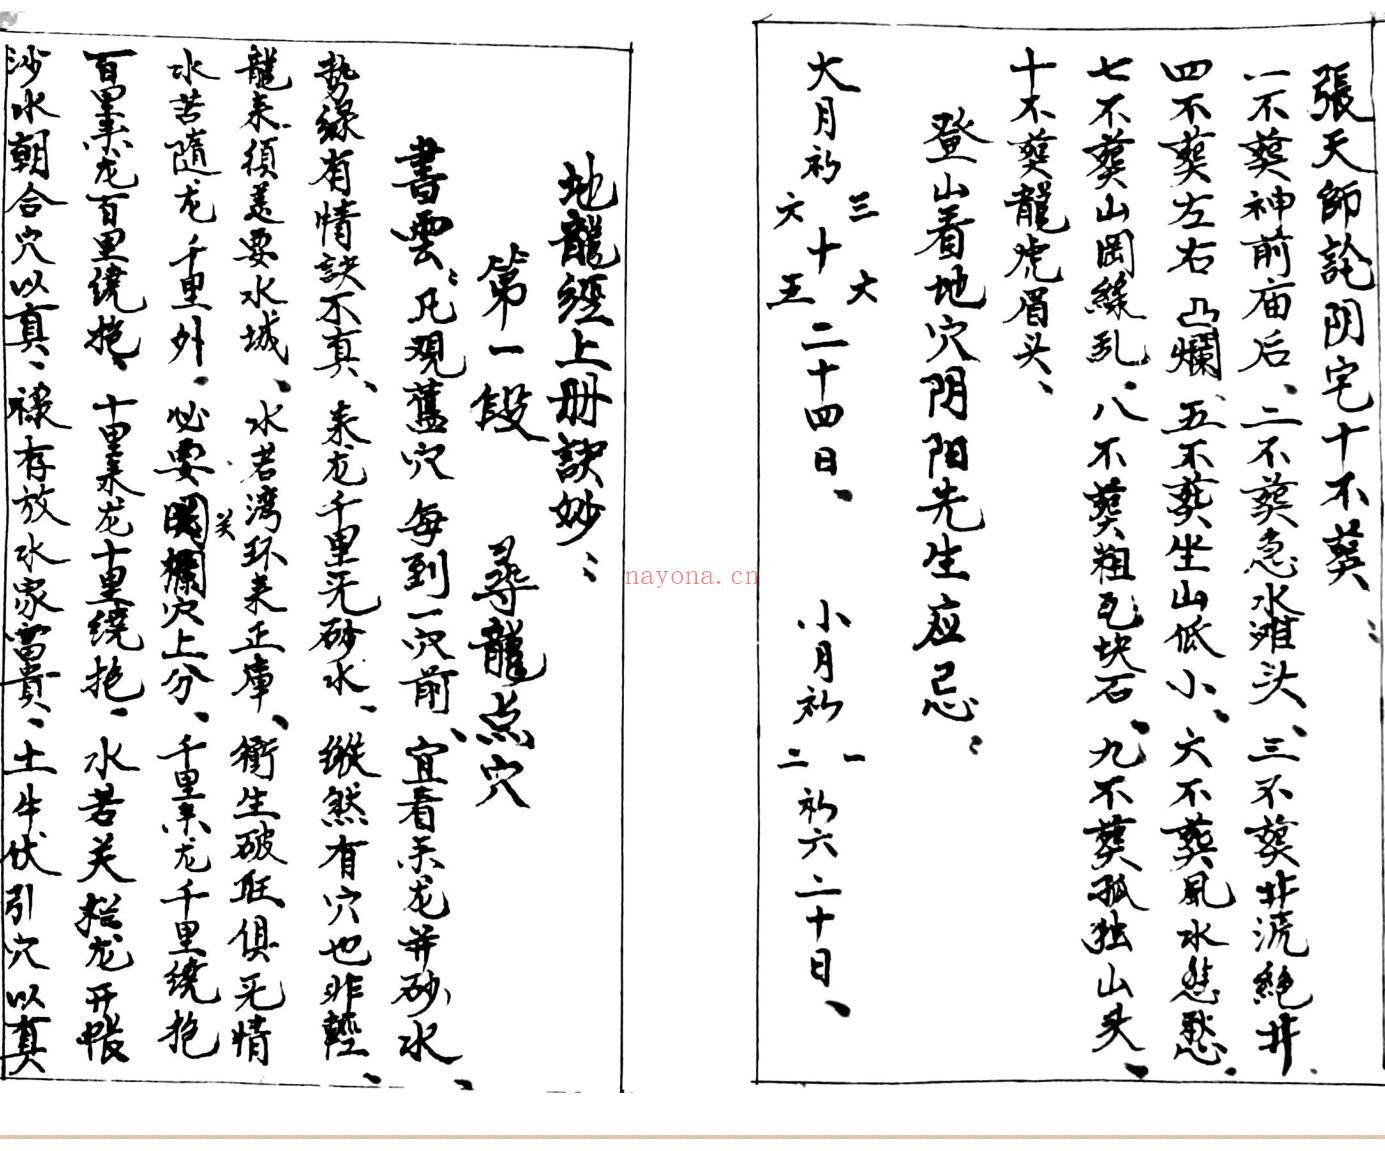 張天師論阴宅十不葬：
一不葬神前庙后、二不葬急水滩头、三不葬非流絕井、
四不葬左右凸爛、五不葬坐山低小、六不葬風水悲愁、
七不葬山岡繚乱、八不葬粗瓦块石、九不葬孤独山头、
十不葬龍虎眉头、
登山看地穴阴阳先生应忌：
大月初三六十六五二十四日、小月初一二初六二十日、
nayona.cn
地龍經上册訣妙：
第一段 尋龍点穴
書雲：凡观舊穴每到一穴前、宜看来龙并砂水、
勢缘有情訣不真、来龙千里无砂水、縱然有穴也非輕、
龍来須美要水城、水若湾环来正庫、衝生破旺俱无情
水若隨龙千里外、必要関攔穴上分、千里来龙千里繞抱
关
百里来龙百里繞抱、十里来龙十里繞抱、水若关拦龙开帳
沙水朝合穴以真、禄存放水家富貴、土牛伏引穴以真